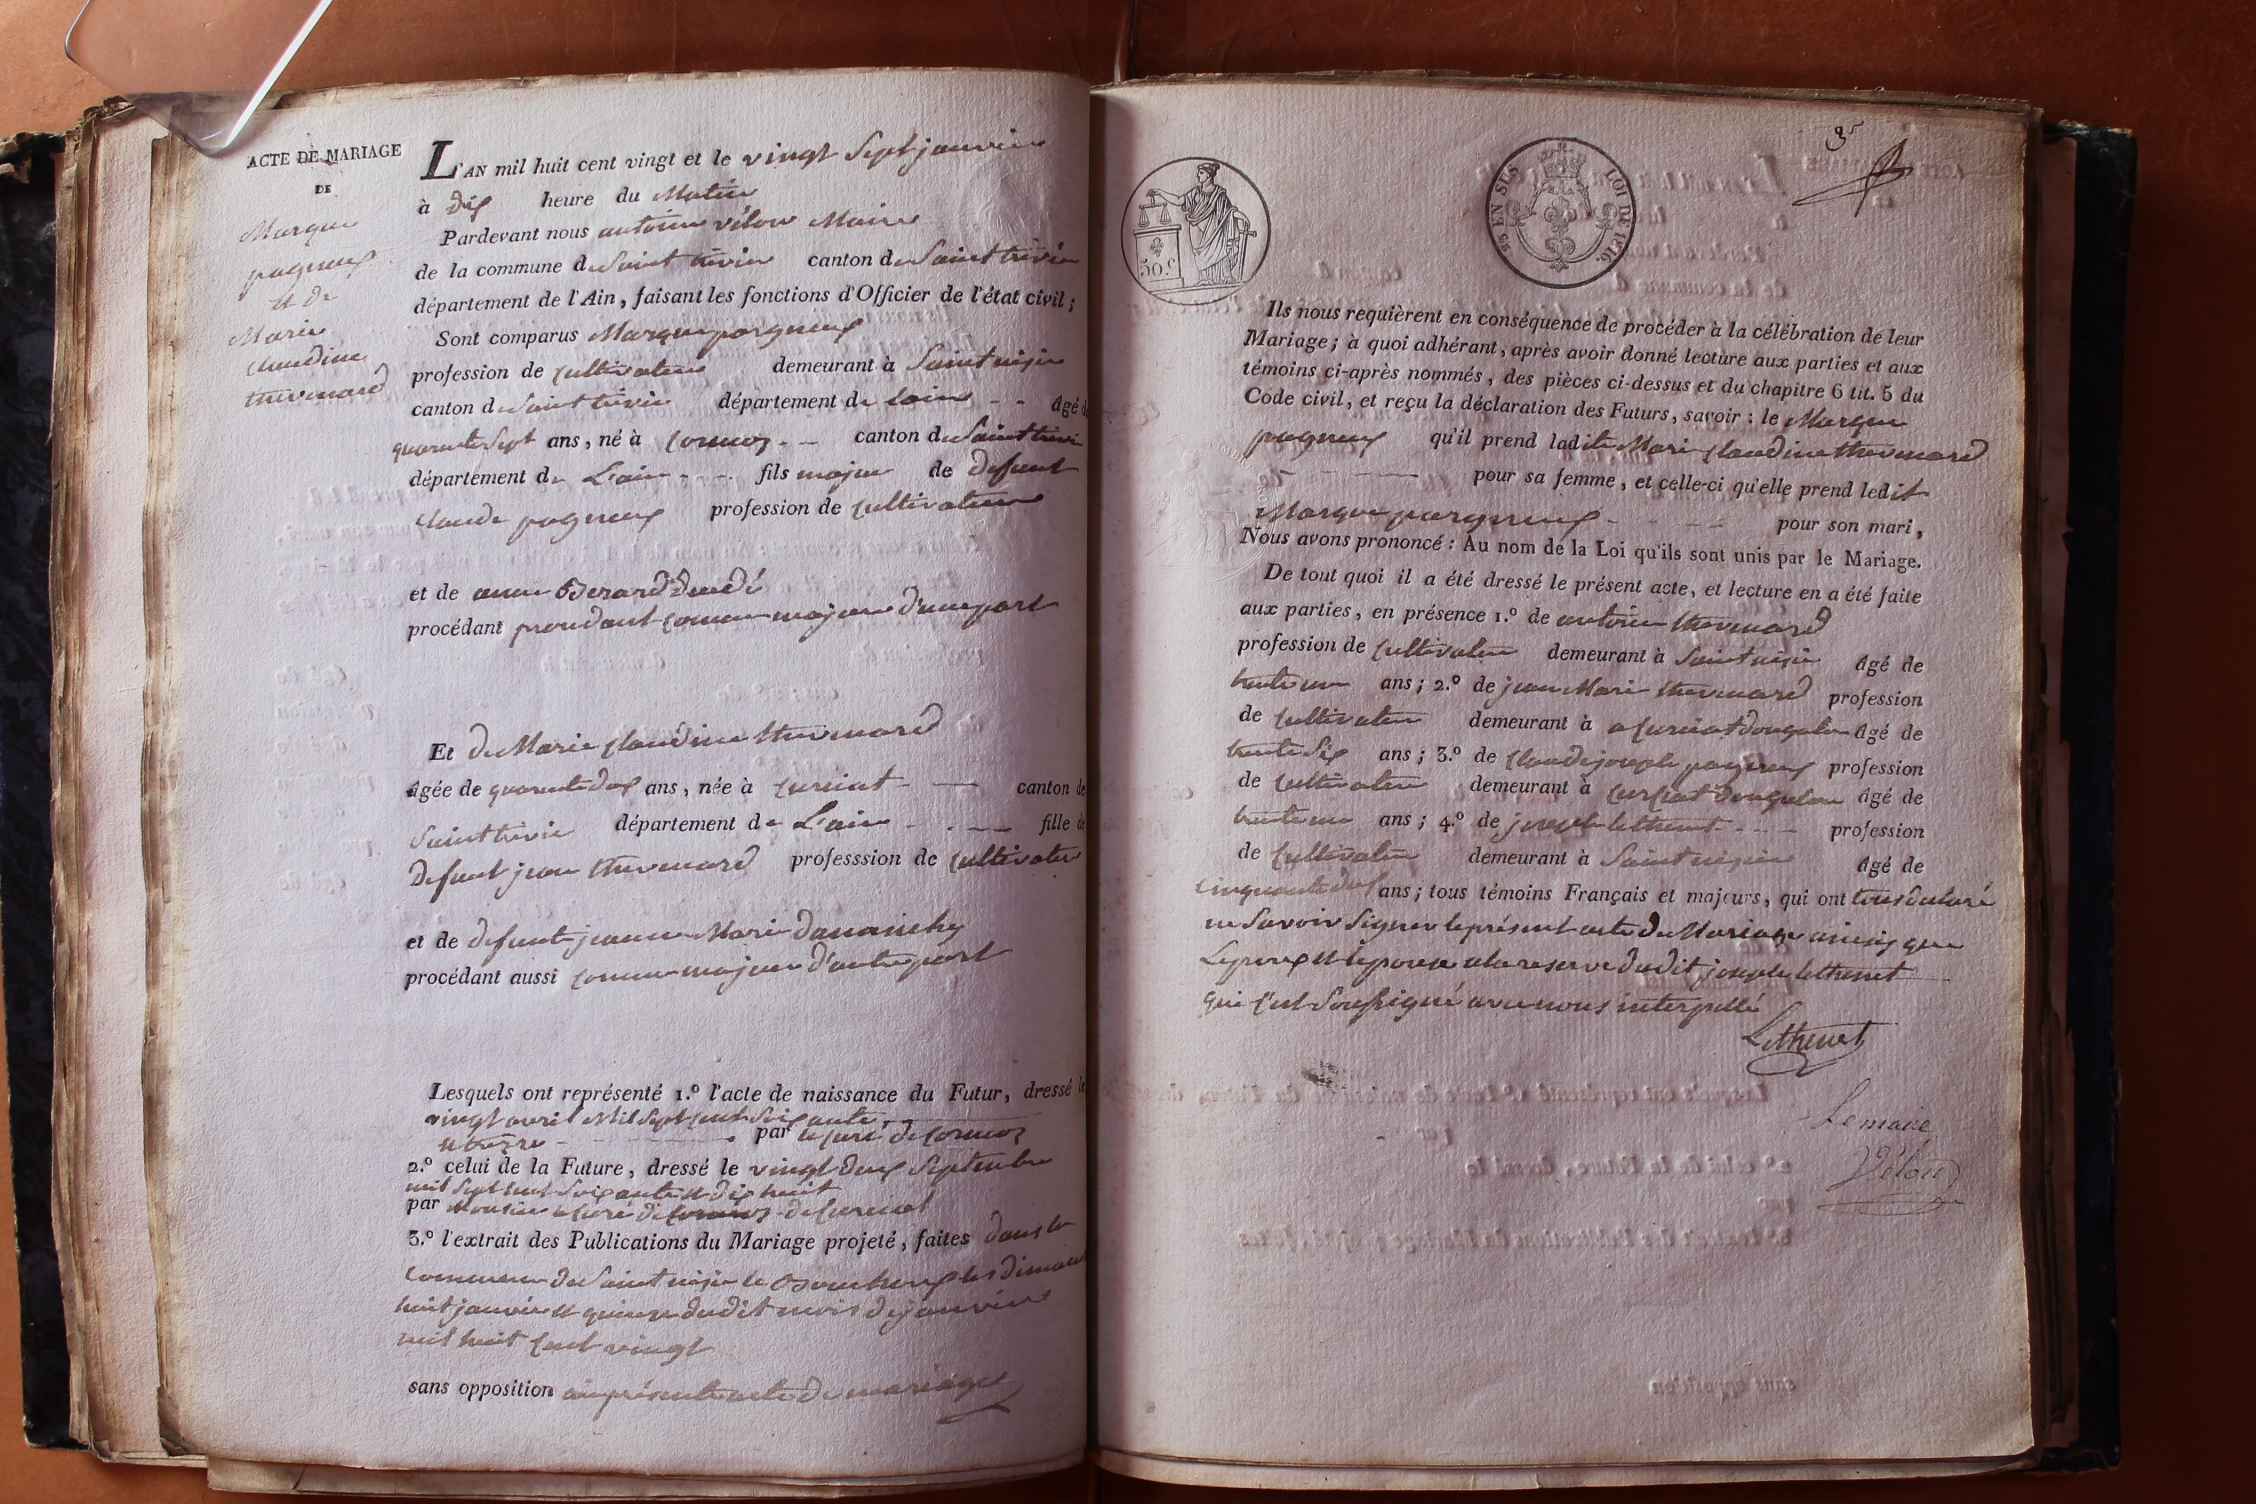 ACTE DE MARIAGE
DE
Marque
pagneux
et de
Marie
claudine
thevenard
L'AN mil huit cent vingt et le vingt Sept janvier
à dix heure du Matin
Pardevant nous antoine vélon Maire
de la commune de Saint trivier canton de Saint trivier
département de l'Ain, faisant les fonctions d'Officier de l'état civil;
Sont comparus Marque pagneux
profession de cultivateur demeurant à Saint nizier
canton de Saint trivier département de lain agé de
quarante Sept ans, né à cormoz canton de Saint trivier
département de L'ain fils majeur de defunt
claude pagneux profession de cultivateur
et de anne Berard
procédant comme majeur d'une part
Et de Marie claudine thevenard
agée de quarante deux ans, née à curciat canton de
Saint trivier département de L'ain fille de
defunt jean thevenard professsion de cultivateur
et de defunte jeanne Marie
procédant aussi comme majeur d'autre part
Lesquels ont représenté 1.º l'acte de naissance du Futur, dressé le
vingt avril Mil Sept cent Soixante
et treize par le curé de cormoz
2.º celui de la Future, dressé le vingt deux Septembre
mil Sept cent Soixante et dix huit
par monsieur le curé de cormoz de curciat
3.º l'extrait des Publications du Mariage projeté, faites dans la
commune de Saint nizier le Bouchoux les dimanche
huit janvier et quinze dudit mois de janvier
mil huit cent vingt
sans opposition au présent acte de mariage
50.c
95 EN SUS
LOI DE 1816.
Ils nous requièrent en conséquence de procéder à la célébration de leur
Mariage; à quoi adhérant, après avoir donné lecture aux parties et aux
témoins ci-après nommés, des pièces ci-dessus et du chapitre 6 tit. 5 du
Code civil, et reçu la déclaration des Futurs, savoir: le Marque
pagneux qu'il prend ladite Marie claudine thevenard
pour sa femme, et celle-ci qu'elle prend ledit
Marque pagneux pour son mari,
Nous avons prononcé: Au nom de la Loi qu'ils sont unis par le Mariage.
De tout quoi il a été dressé le présent acte, et lecture en a été faite
aux parties, en présence 1.º de antoine thevenard
profession de cultivateur demeurant à Saint nizier agé de
trente un ans; 2.º de jean Marie thevenard profession
de cultivateur demeurant à a curciat dongalon agé de
trente Six ans; 3.º de claude joseph pagneux profession
de cultivateur demeurant à curciat dongalon agé de
trente un ans; 4.º de joseph lethenet profession
de cultivateur demeurant à Saint nizier agé de
cinquante deux ans; tous témoins Français et majeurs, qui ont tous declaré
ne Savoir Signer le présent acte de Mariage ainsy que
L'epoux et l'epouse a la reserve dudit joseph lethenet
qui c'est Soussigné avec nous interpellé
Lethenet
Le maire
Vélon